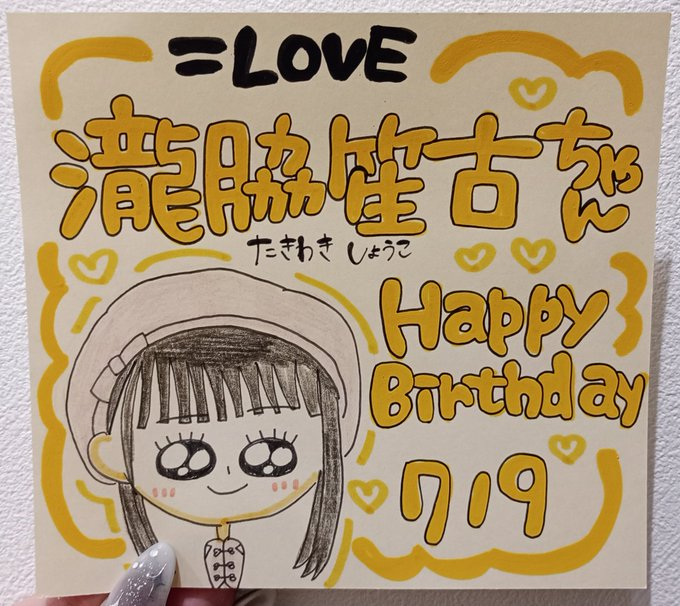 =LOVE
瀧脇笙古ちゃん
たきわき しょうこ
Happy
Birthday
719